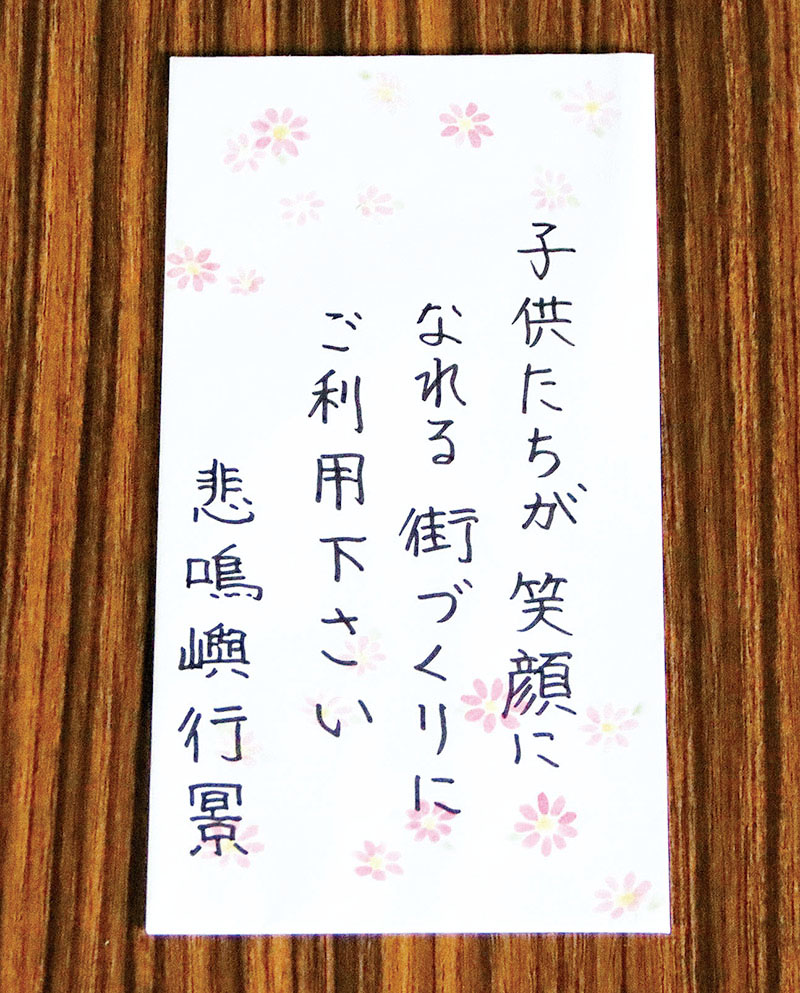 子供たちが 笑顔に
なれる 街づくりに
ご利用下さい
悲鳴嶼行冥